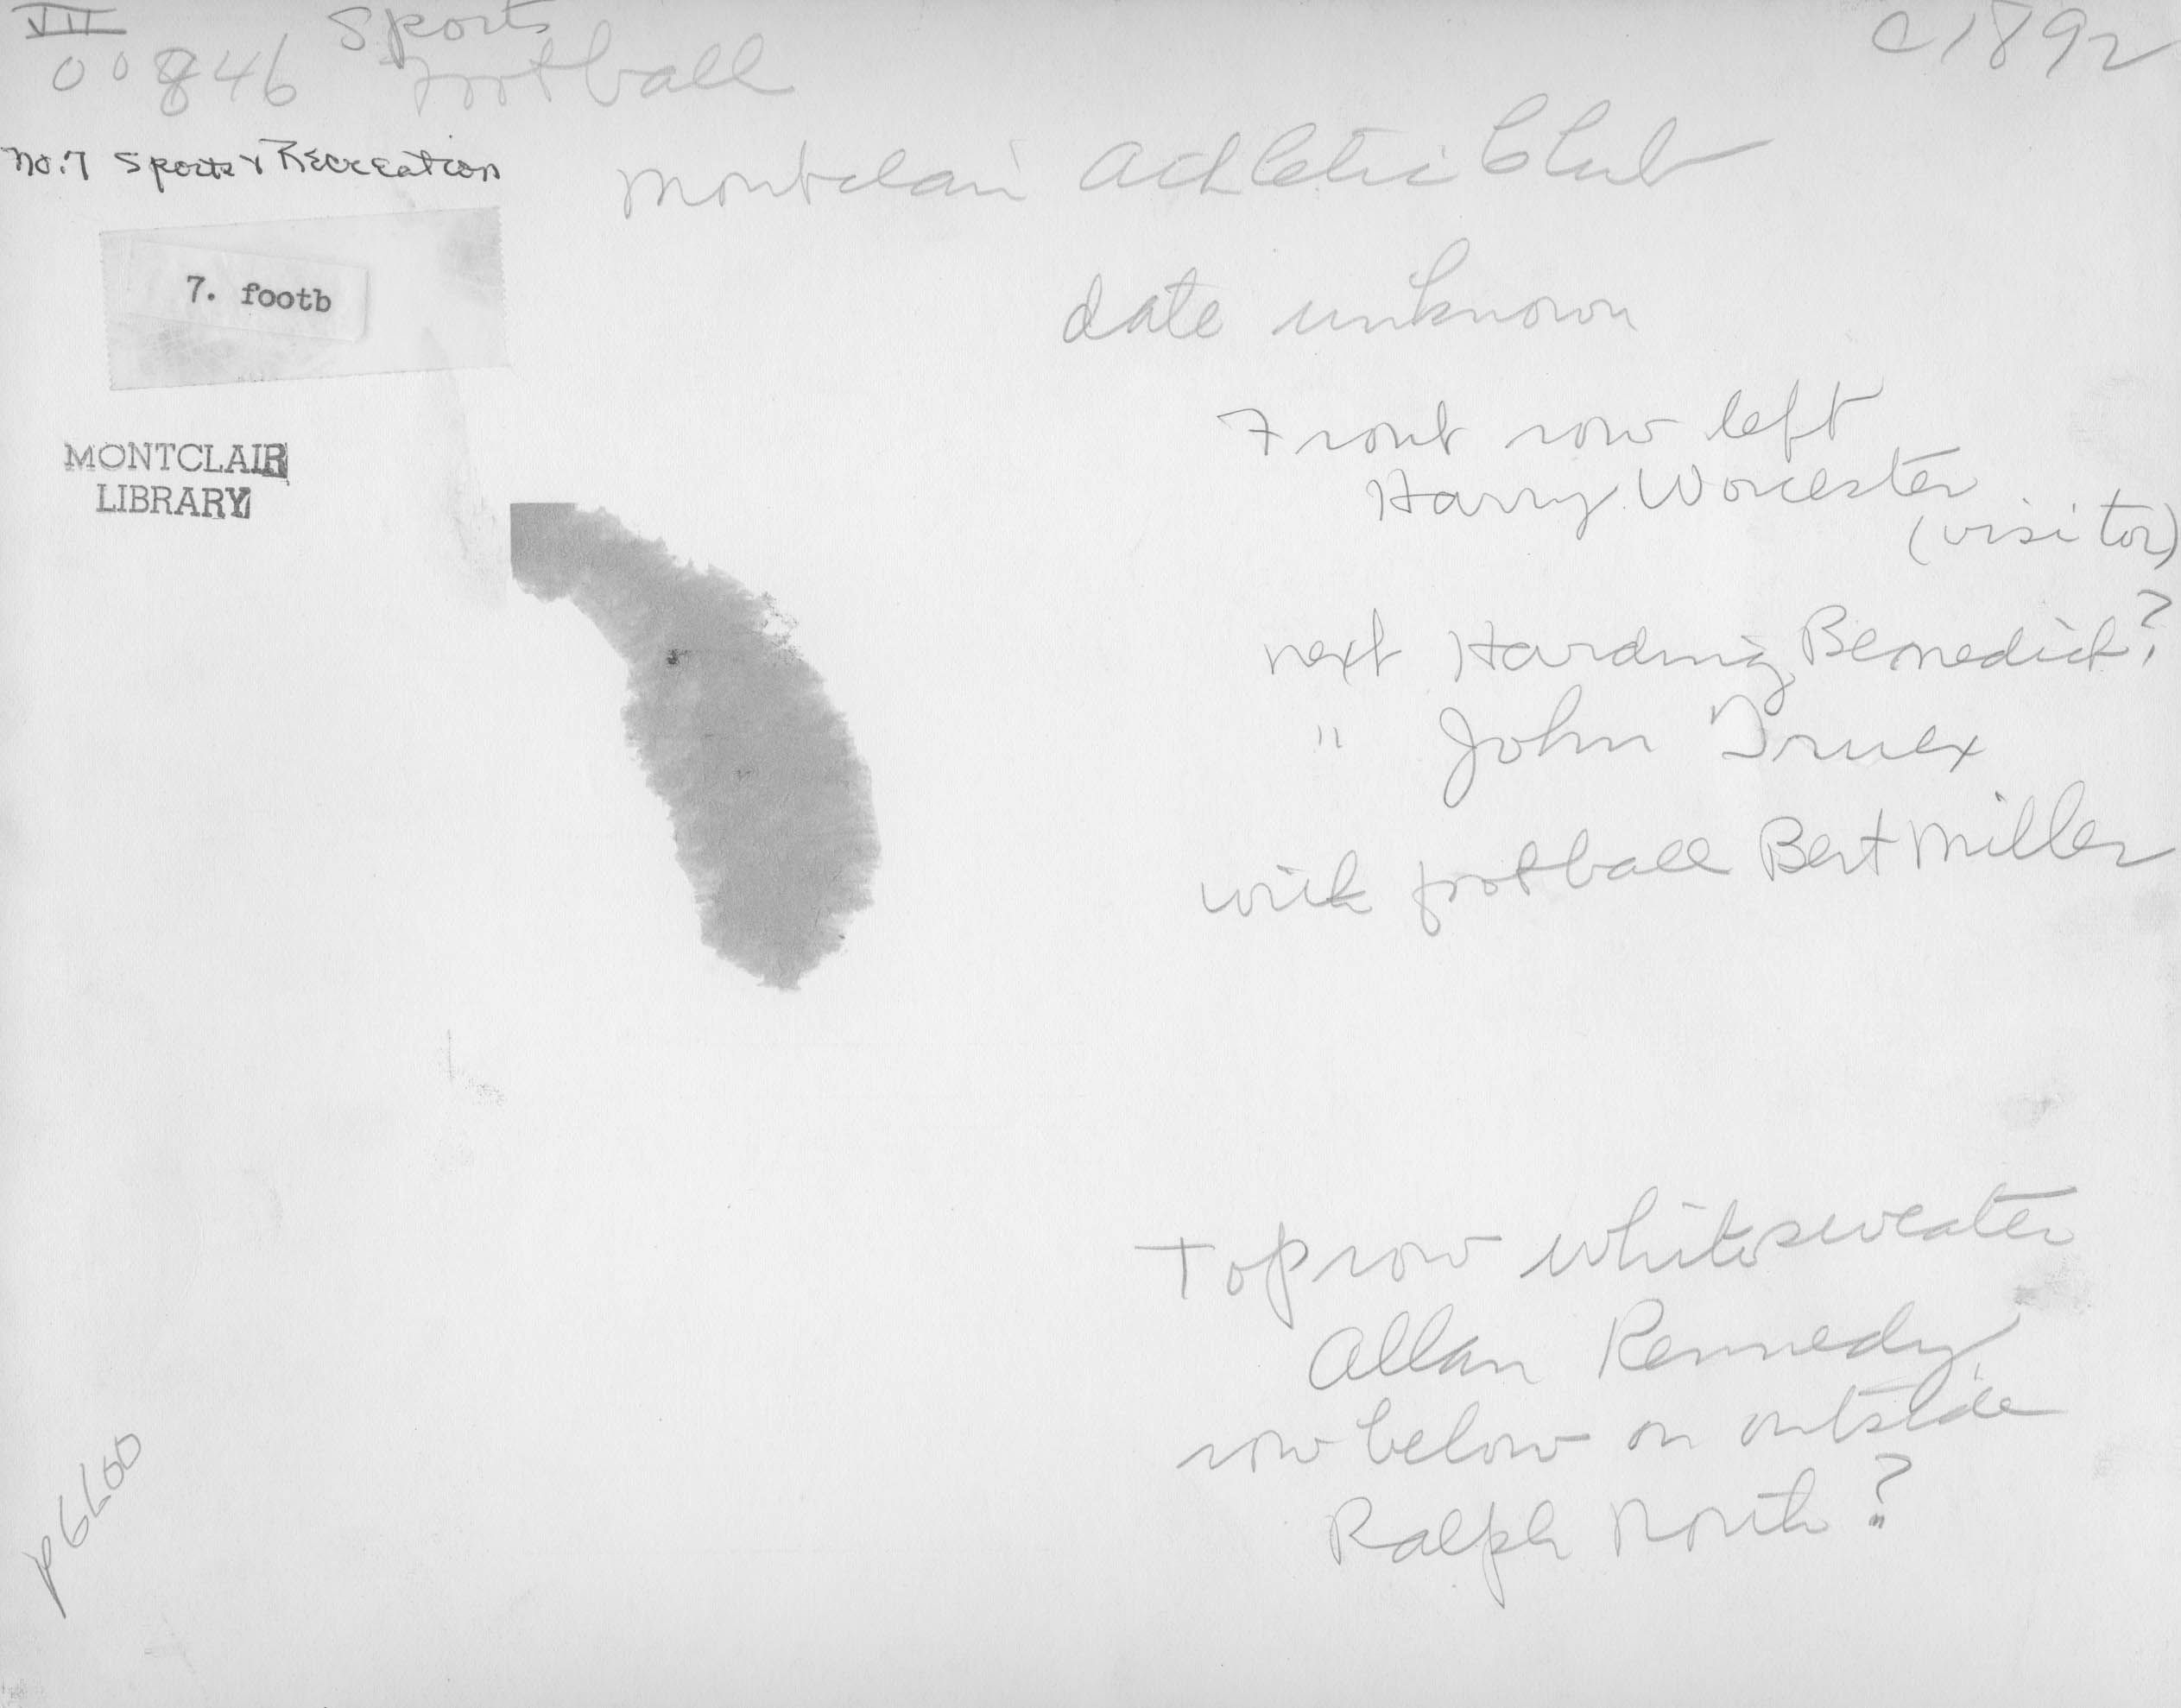 VII Sports c1892
00846 Football
No. 7 Sports & Recreation
Montclair Athletic Club
7. footb
date unknown
MONTCLAIR
LIBRARY
Front row left
Harry Worcester
(visitor)
next Harding Benedict?
" John Truex
with football Bert Miller
Top row white sweater
Allan Kennedy
row below on outside
Ralph North?
P6600